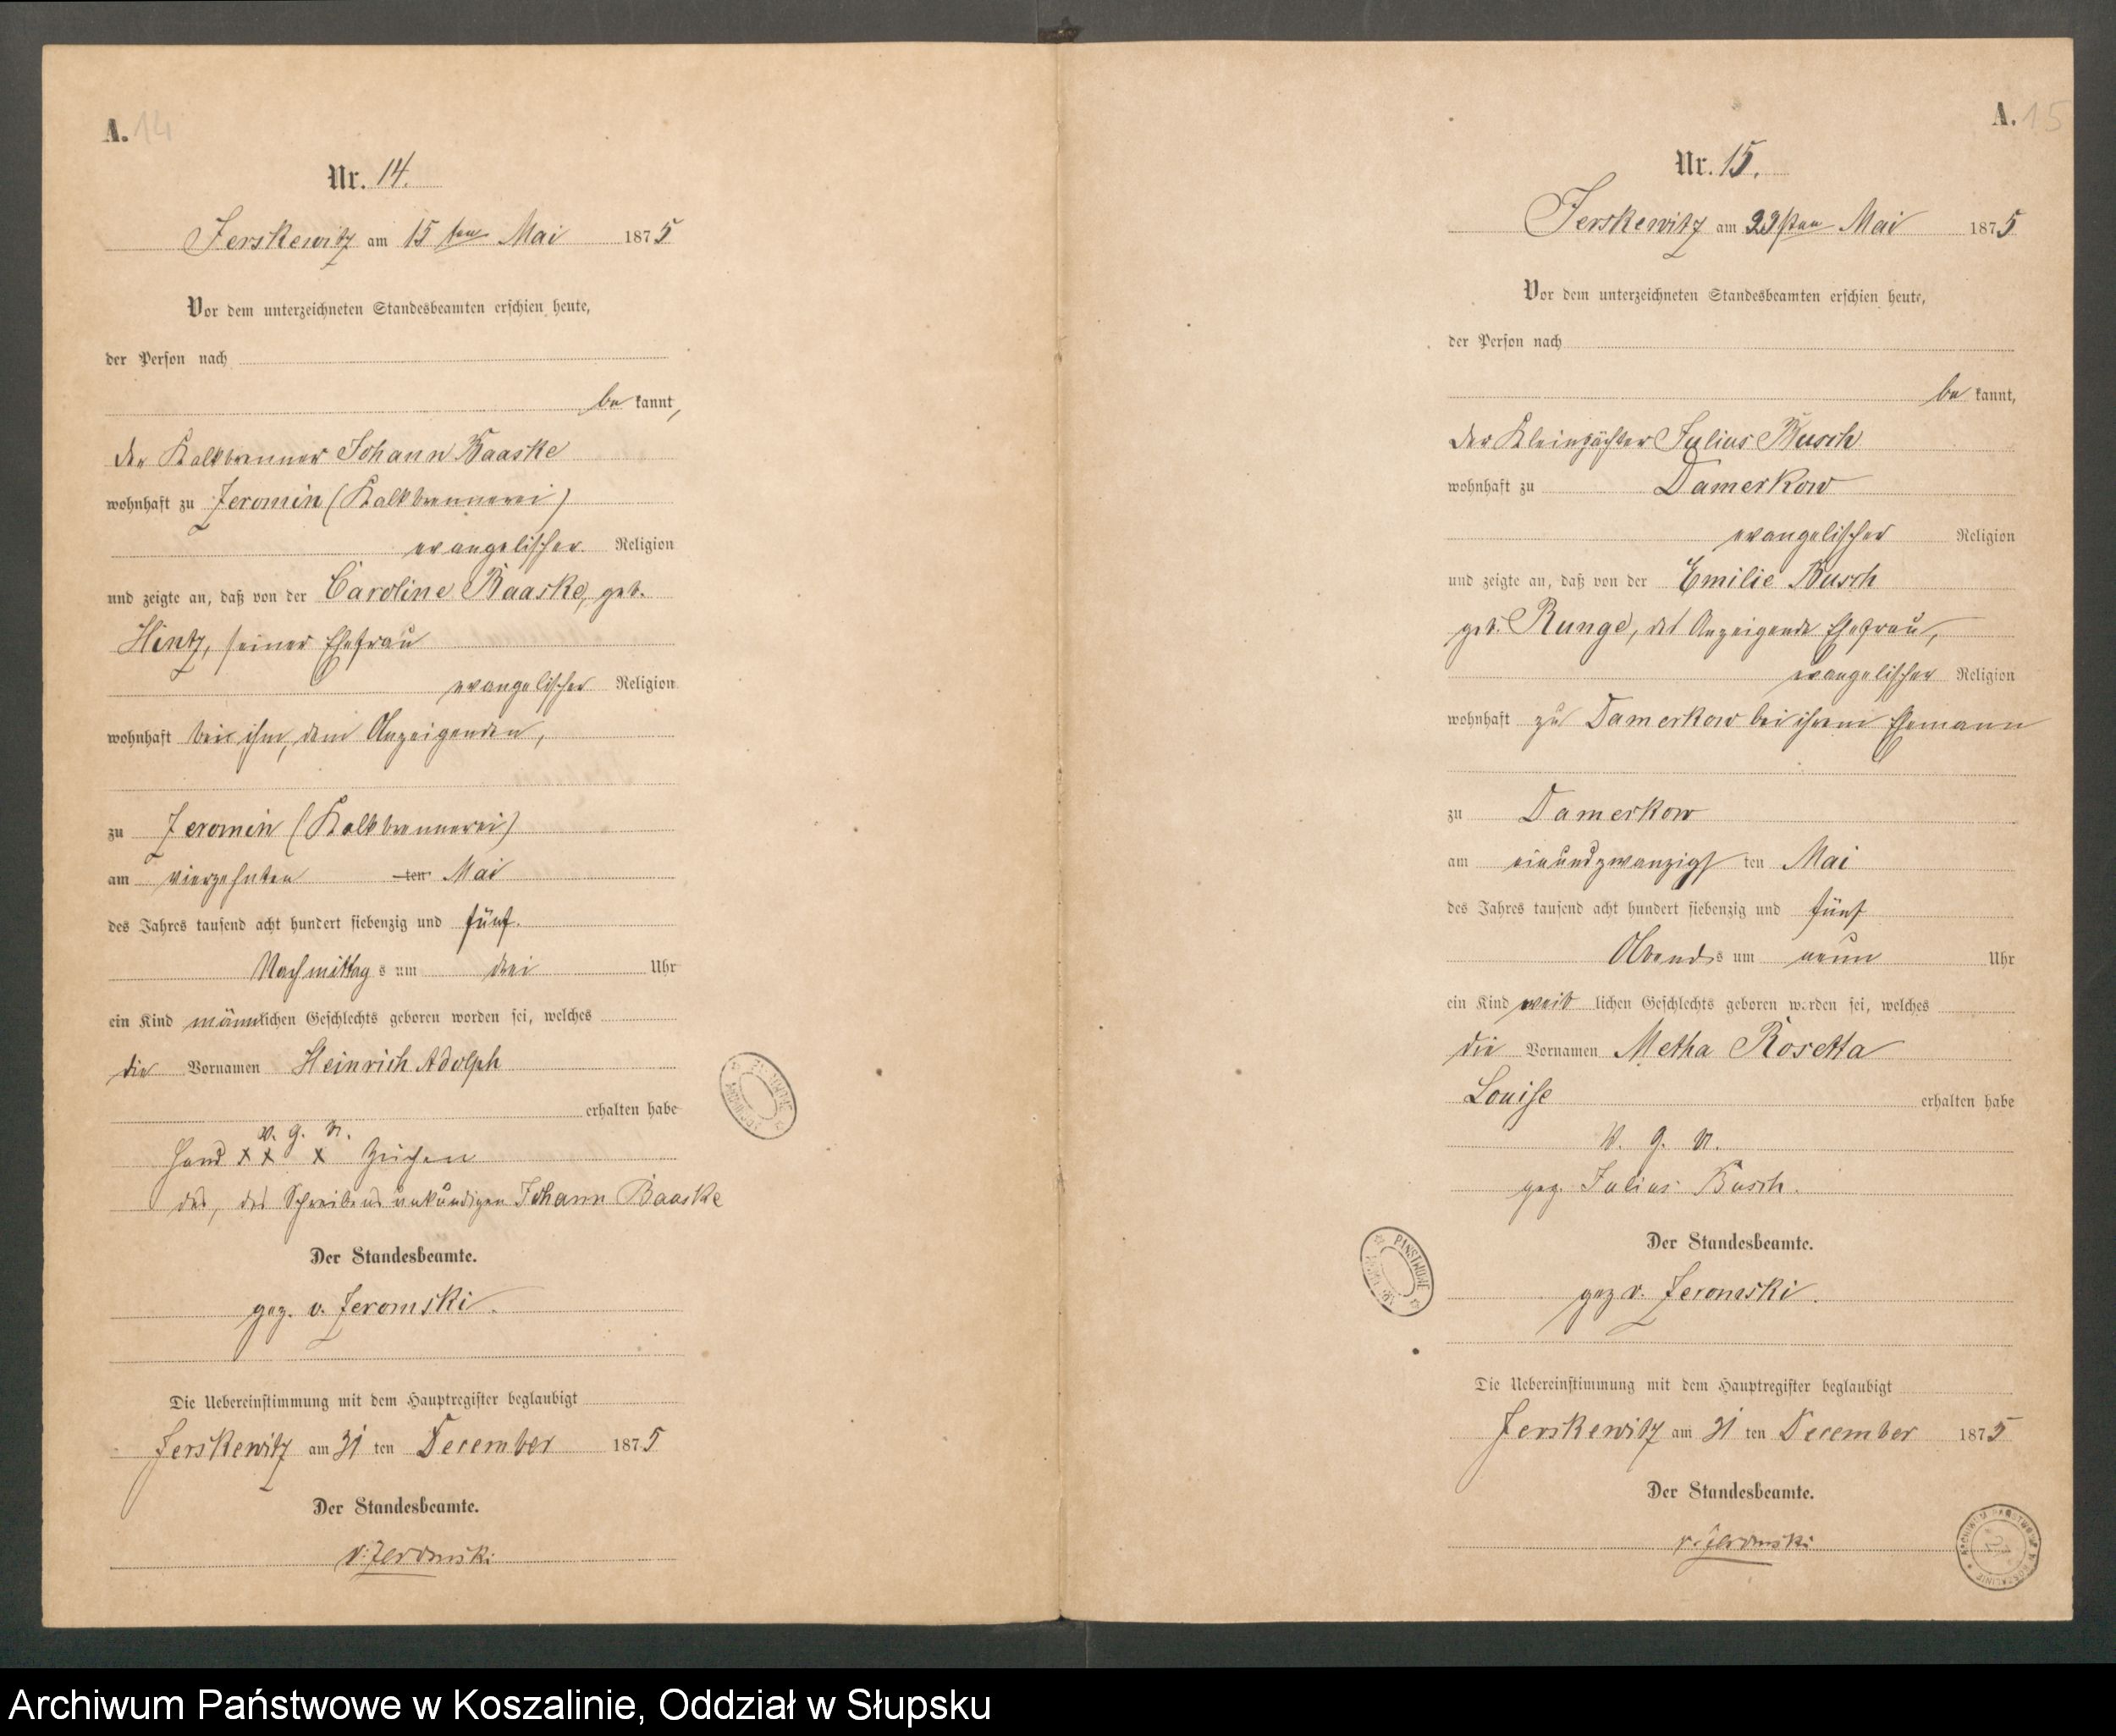 A. 14
Nr. 14.
Jerskewitz am 15 ten Mai 1875
Vor dem unterzeichneten Standesbeamten erschien heute,
der Person nach
be kannt,
der Kalkbrenner Johann Baaske
wohnhaft zu Jeromin (Kalkbrennerei)
evangelischer Religion
und zeigte an, daß von der Caroline Baaske, geb.
Hintz, seiner Ehefrau
evangelischer Religion
wohnhaft bei ihm, dem Anzeigenden,
zu Jeromin (Kalkbrennerei)
am vierzehnten ten Mai
des Jahres tausend acht hundert siebenzig und fünf.
Nachmittag s um drei Uhr
ein Kind männlichen Geschlechts geboren worden sei, welches
die Vornamen Heinrich Adolph
erhalten habe
v. g. u.
Hand x x x Zeichen
des, des Schreibens unkundigen Johann Baaske
Der Standesbeamte.
gez. v. Jeromski.
Die Uebereinstimmung mit dem Hauptregister beglaubigt
Jerskewitz am 31 ten December 1875
Der Standesbeamte.
v. Jeromski
A. 15
Nr. 15.
Jerskewitz am Mai 1875
Vor dem unterzeichneten Standesbeamten erschien heute,
der Person nach
be kannt,
der Kleinpächter Julius Busch
wohnhaft zu Damerkow
evangelischer Religion
und zeigte an, daß von der Emilie Busch
geb. Runge, des Anzeigende Ehefrau,
evangelischer Religion
wohnhaft zu Damerkow bei ihrem Ehemann
zu Damerkow
am einundzwanzigs ten Mai
des Jahres tausend acht hundert siebenzig und fünf
Abends s um neun Uhr
ein Kind weib lichen Geschlechts geboren worden sei, welches
die Vornamen Metha Rosetta
Louise erhalten habe
v. g. u.
gez. Julius Busch.
Der Standesbeamte.
gez v. Jeromski.
Die Uebereinstimmung mit dem Hauptregister beglaubigt
Jerskewitz am 31 ten December 1875
Der Standesbeamte.
v. Jeromski
Archiwum Państwowe w Koszalinie, Oddział w Słupsku